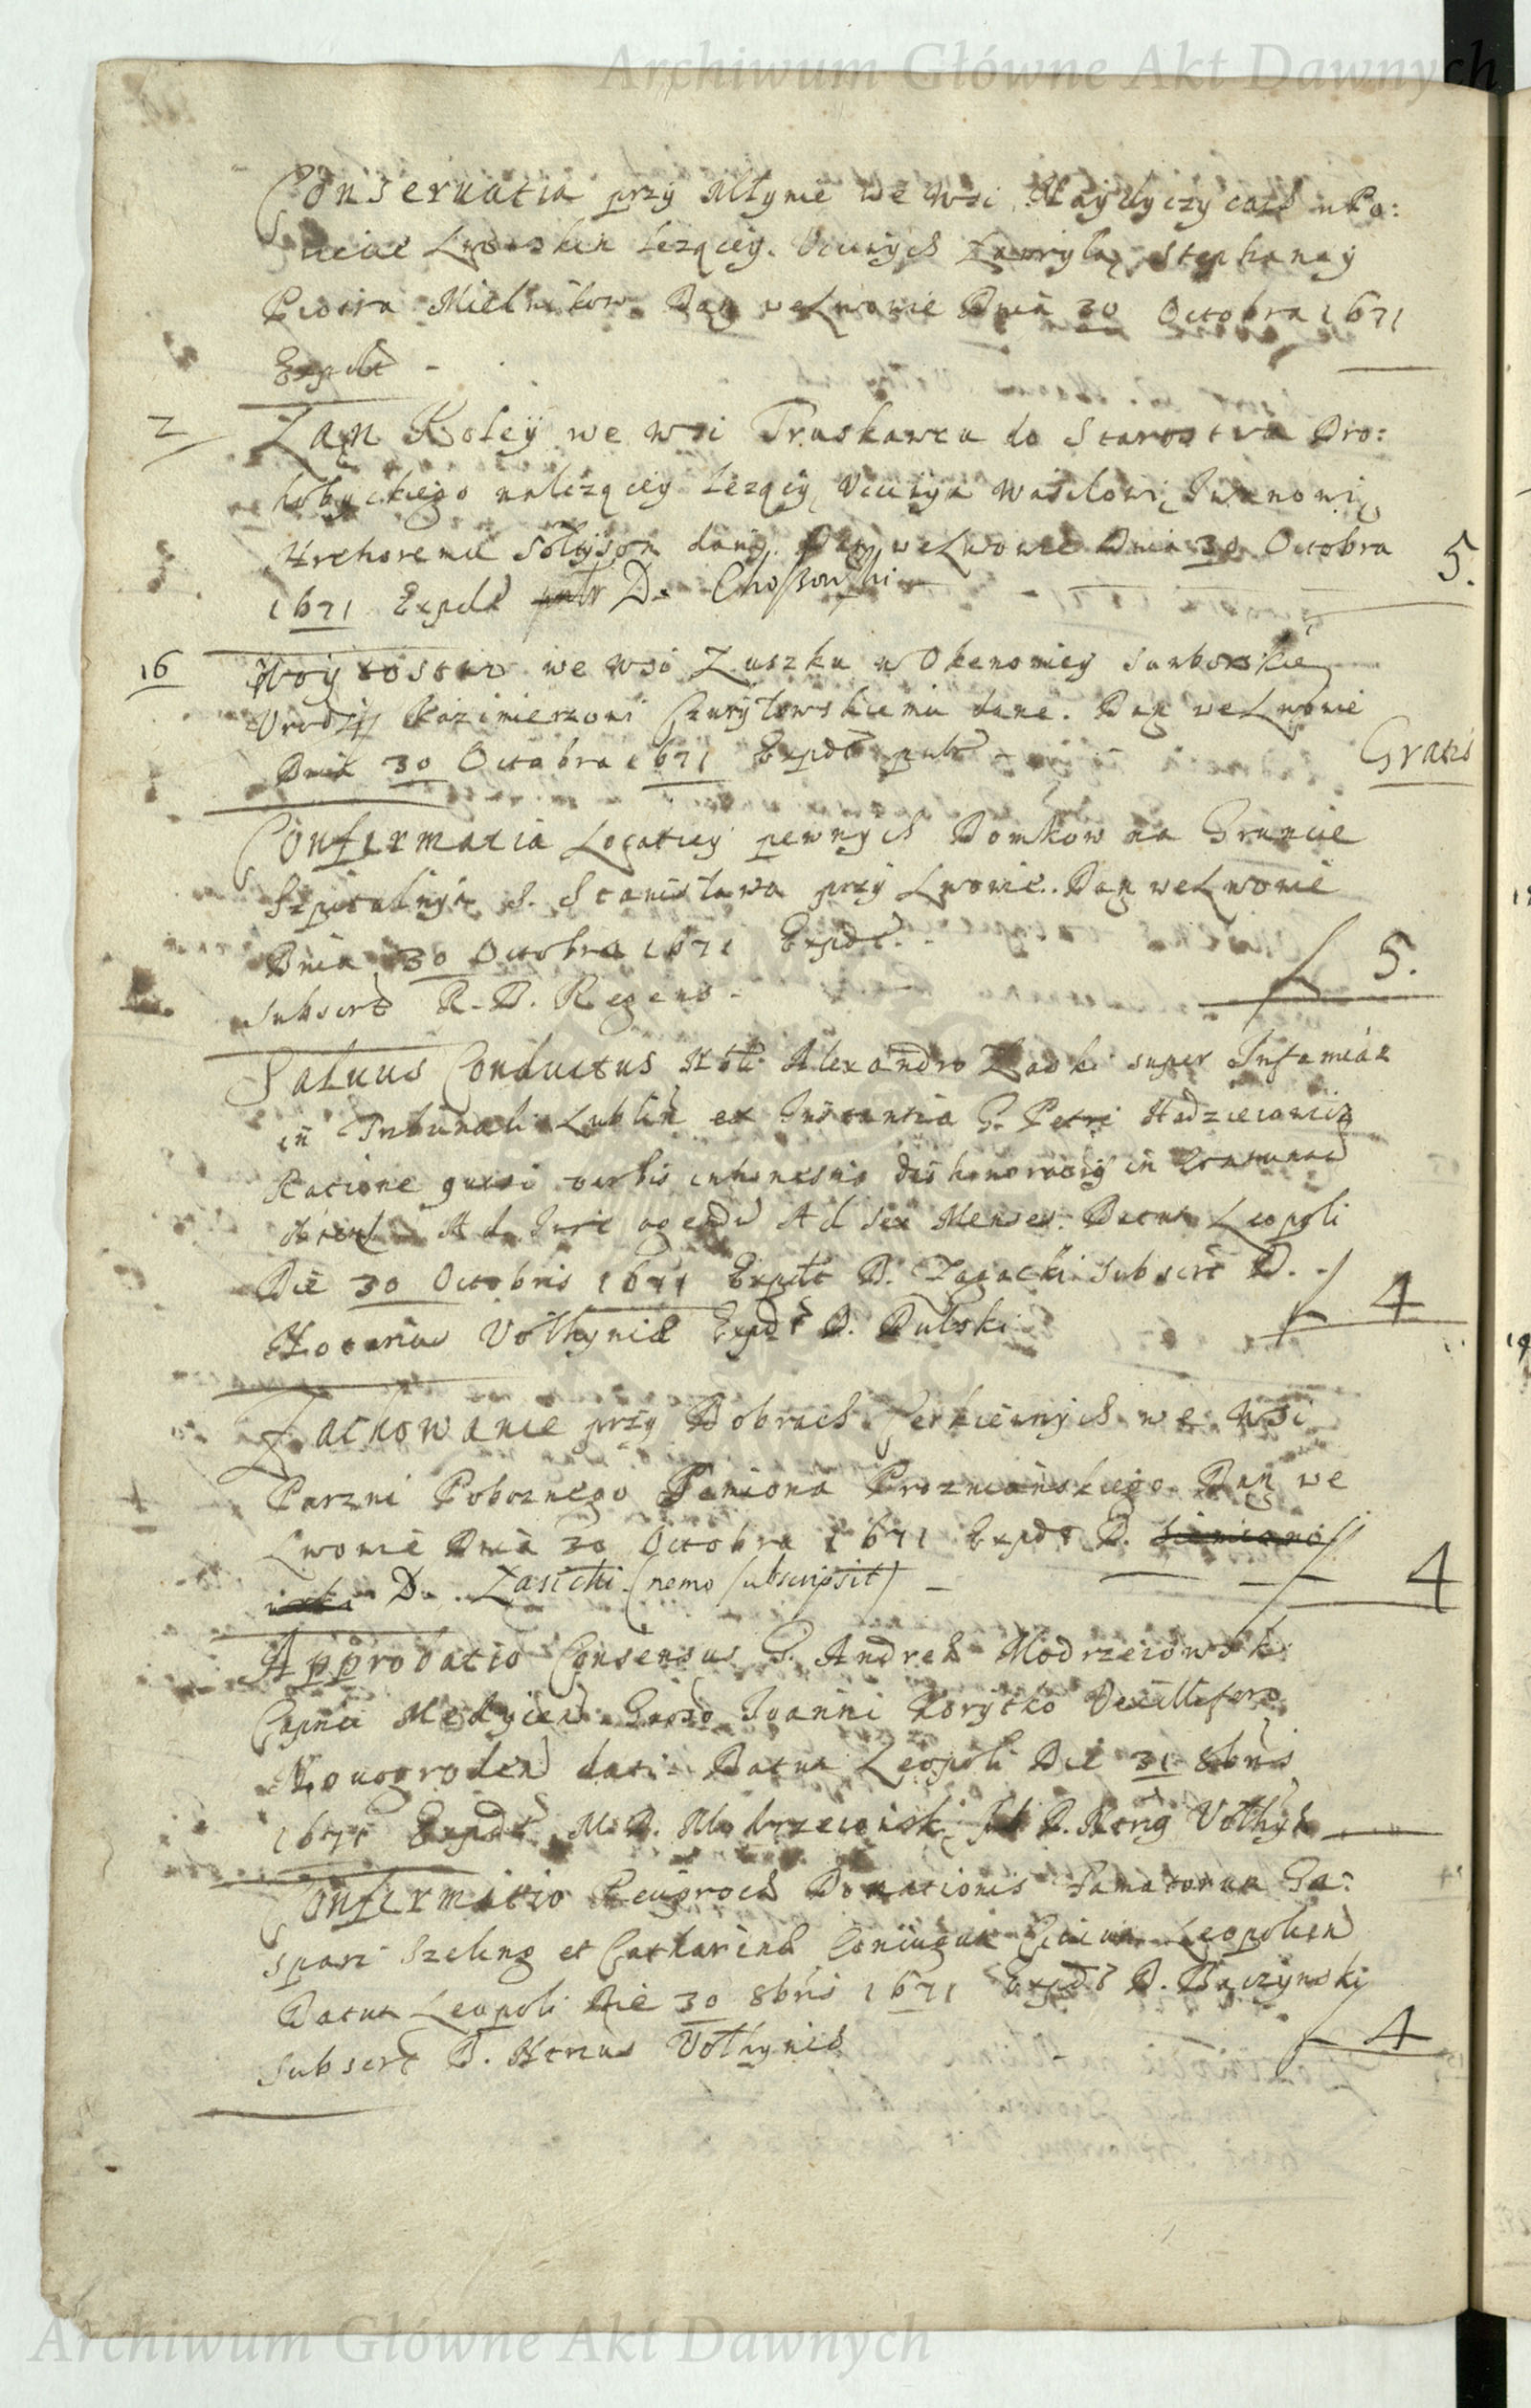 Archiwum Główne Akt Dawnych
Conseruatia przy Młynie we Wsi Haydyczycach w Po:
wiecie Lwowskim lezącey. Vcciwych Stephana y
Piotra Mielnikow. Dan we Lwowie Dnia 30 Octobra 1671
Expdt -
2 Łan Roley we wsi Truskawcu do Starostwa Dro:
hobyckiego nalezącey lezący, Vcciwym Wasilowi, Iwanowi,
Hrehoremu Sołtysom dany. Dan we Lwowie Dnia 30 Octobra
1671 Expdt D. 5.
16 Woytostwo we Wsi Łuszku w Okonomiey Samborskiey
Vrodz. Kazimierzowi Czuryłowskiemu dane. Dan we Lwowie
Dnia 30 Octobra 1671 Expdt Gratis
Confirmatia Locatiey pewnych Domkow na Gruncie
Szpitalnym S. Stanisława przy Lwowie. Dan we Lwowie
Dnia 30 Octobra 1671 Expdt.
Subscrt R. D. Regens - 5.
Saluus Conductus Alexandro super Infamiam
in Tribunali Lublin ex Instantia G. Petri
Ratione quasi verbis inhonestis
Ad Iure agend Ad sex Menses. Datum Leopoli
Die 30 Octobris 1671 Expdt D. Zagacki Subscrt D.
Notarius Volhyniae Expdt D. Dulski 4
Zachowanie przy Dobrach Cerkiewnych we Wsi
Poboznego Dan we
Lwowie Dnia 30 Octobra 1671 Expdt D.
D. Zasicki (nemo subscripsit) - 4
Approbatio Consensus G. Andreae Modrzeiowski
Capnei Groso Ioanni Korytko Vexillifero
Nouogroden dati. Datum Leopoli Die 31 8bris
1671 Expdt M. D. Modrzeiowski D. Volhyn
Confirmatio Donationis Famatorum Ga:
spari Szeling et Catharinae Coniugum Ciuium Leopolien
Datum Leopoli Die 30 8bris 1671 Expdt D. Baczynski
Subscrt D. Volhyniae 4
Archiwum Główne Akt Dawnych